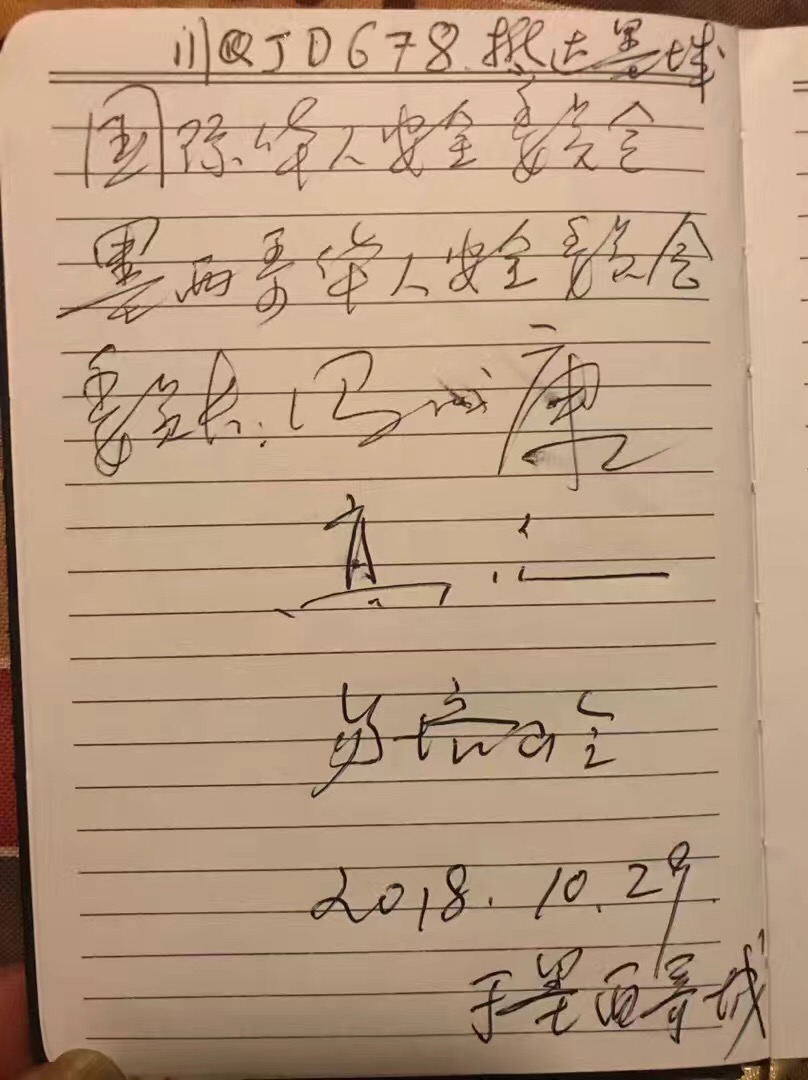 川QJD678.抵达墨城
国际华人安全委员会
墨西哥华人安全委员会
委员长:冯成康
2018.10.29
于墨西哥城